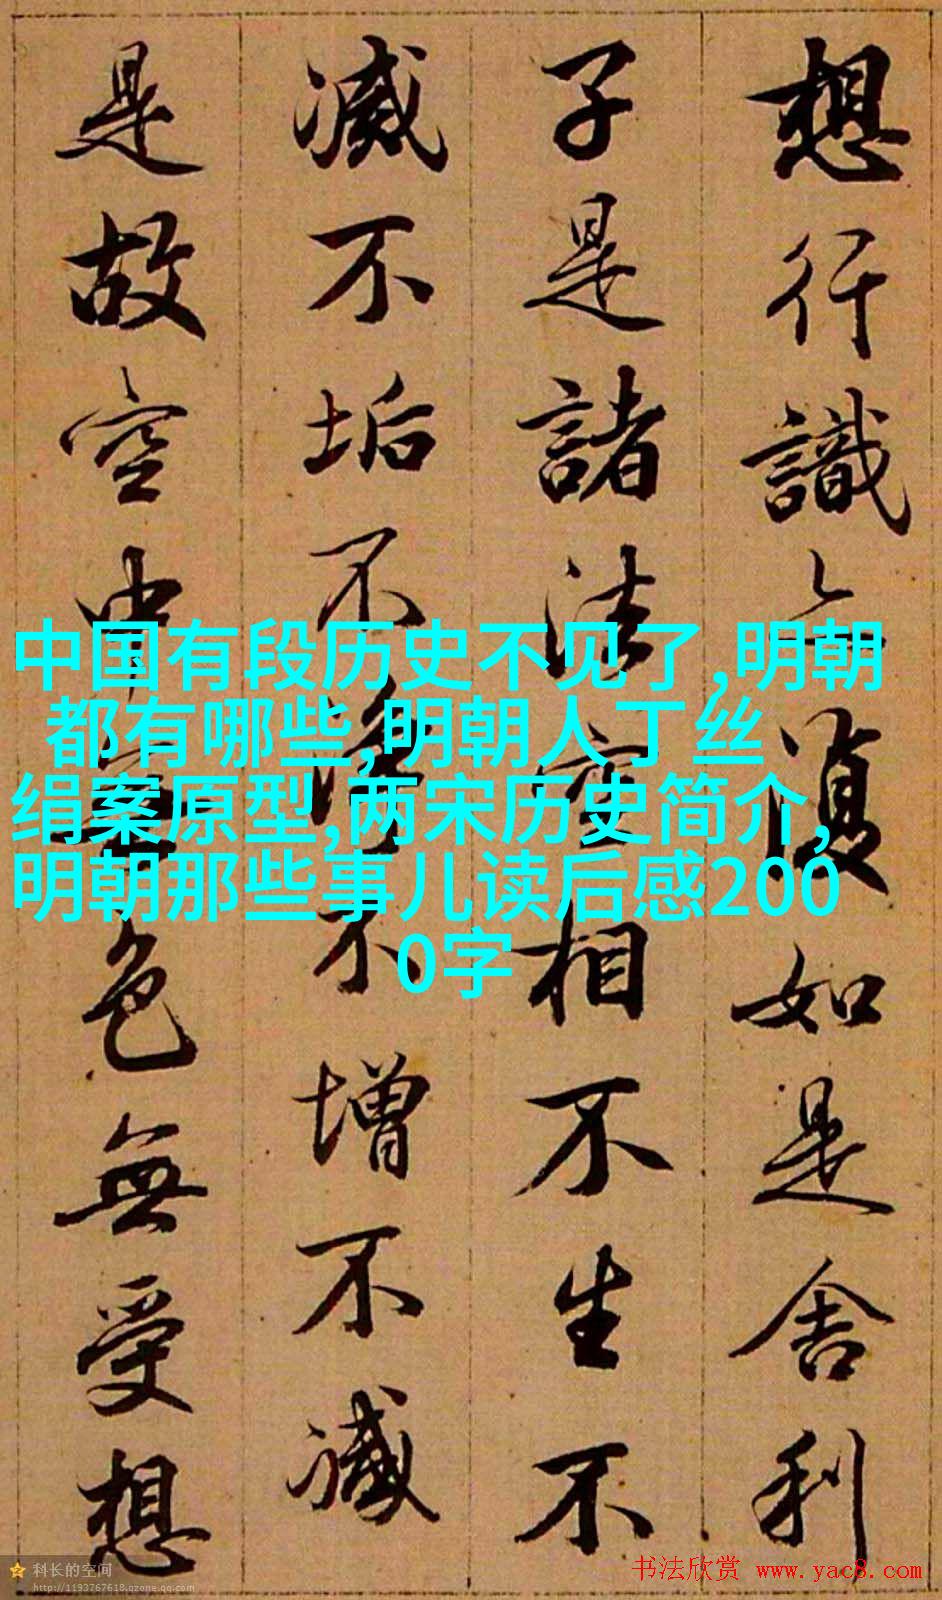 想行識亦復如是舍利
子是諸法空相不生不
滅不垢不淨不增不減
是故空中無色無受想
中国有段历史不见了,明朝
都有哪些,明朝人丁丝
绢案原型,两宋历史简介,
明朝那些事儿读后感200
0字
科长的空间
http://1193767618.qzone.qq.com
书法欣赏 www.yac8.com